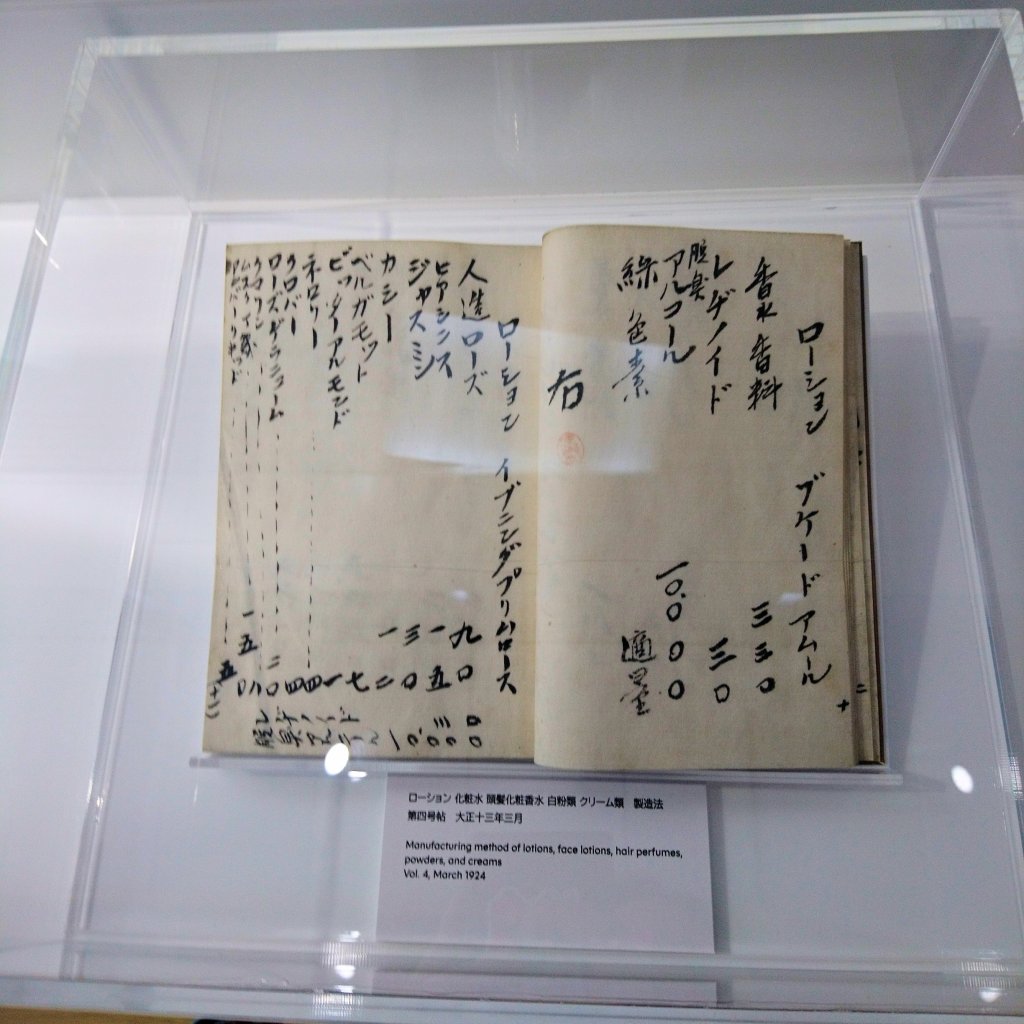 ローション ブケードアムール
香水香料 三三〇
レヂノイド 三〇
脱臭アルコール 一〇.〇〇〇
緑色素 適量
右
ローション イブニングプリムローズ
人造ローズ 九〇
ヒアシンス 一五
ジャスミン 三〇
カシー 一二
ベルガモット 七
ビッターアルモンド 一
ネロリー 四
クロバー 四
ローズゼラニューム 二〇
レヂノイド 三〇
脱臭アルコール 一〇.〇〇〇
ローション 化粧水 頭髪化粧香水 白粉類 クリーム類 製造法
第四号帖 大正十三年三月
Manufacturing method of lotions, face lotions, hair perfumes,
powders, and creams
Vol. 4, March 1924